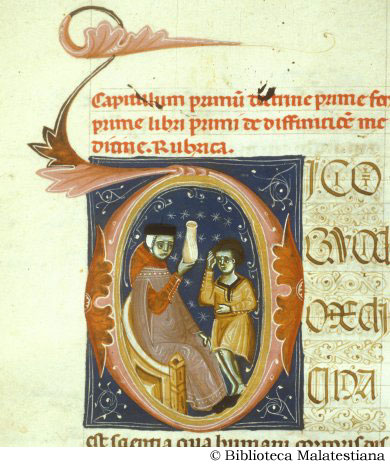 Capitulum primū doctrine prime fen
prime libri primi de diffinitiōe me
dicine. Rubrica.
DICO
QVOD
MEDI
CINA
est scientia qua humani corporis dis
© Biblioteca Malatestiana